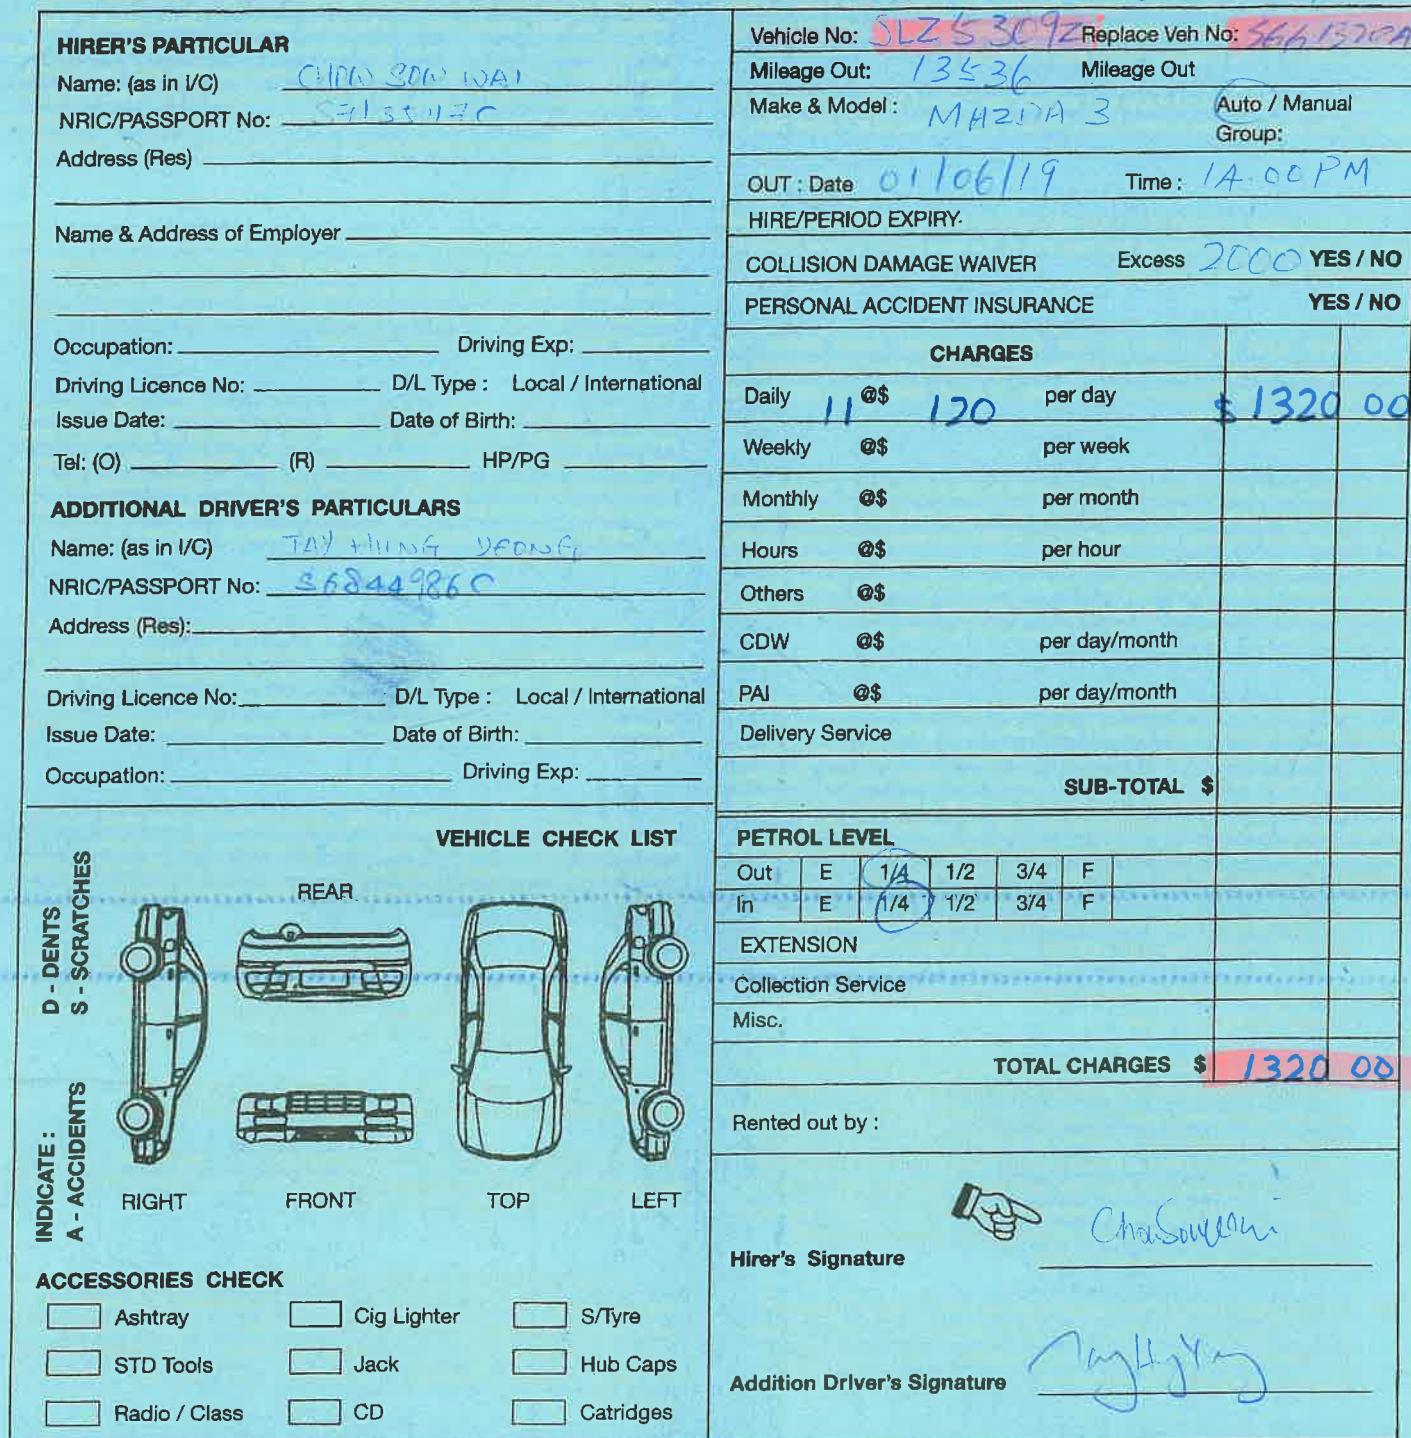 HIRER'S PARTICULAR
Name: (as in I/C) CHAN SOW WAI
NRIC/PASSPORT No:
Address (Res)
Name & Address of Employer
Occupation: Driving Exp:
Driving Licence No: D/L Type : Local / International
Issue Date: Date of Birth:
Tel: (O) (R) HP/PG
ADDITIONAL DRIVER'S PARTICULARS
Name: (as in I/C) TAY HUNG YEONG
NRIC/PASSPORT No: S6844986C
Address (Res):
Driving Licence No: D/L Type : Local / International
Issue Date: Date of Birth:
Occupation: Driving Exp:
VEHICLE CHECK LIST
D - DENTS
S - SCRATCHES
INDICATE :
A - ACCIDENTS
REAR
RIGHT FRONT TOP LEFT
ACCESSORIES CHECK
Ashtray Cig Lighter S/Tyre
STD Tools Jack Hub Caps
Radio / Class CD Catridges
Vehicle No: SLZ5309Z Replace Veh No:
Mileage Out: 13536 Mileage Out
Make & Model : MAZDA 3 Auto / Manual
Group:
OUT : Date 01/06/19 Time : 14.00 PM
HIRE/PERIOD EXPIRY.
COLLISION DAMAGE WAIVER Excess 2000 YES / NO
PERSONAL ACCIDENT INSURANCE YES / NO
CHARGES
Daily 11 @$ 120 per day $ 1320 00
Weekly @$ per week
Monthly @$ per month
Hours @$ per hour
Others @$
CDW @$ per day/month
PAI @$ per day/month
Delivery Service
SUB-TOTAL $
PETROL LEVEL
Out E 1/4 1/2 3/4 F
In E 1/4 1/2 3/4 F
EXTENSION
Collection Service
Misc.
TOTAL CHARGES $ 1320 00
Rented out by :
Hirer's Signature
Addition Driver's Signature